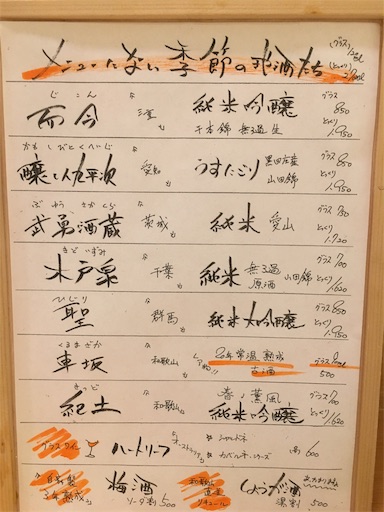 メニューにない季節の地酒たち
グラス
とっくり
じこん
而今
三重
純米吟醸
千本錦 無ろ過 生
グラス 850
とっくり 1,950
かもしびとくへいじ
醸し人九平次
愛知
うすにごり
黒田庄産
山田錦
グラス 850
とっくり 1,950
ぶゆうさかぐら
武勇酒蔵
茨城
純米 愛山
グラス 730
とっくり 1,720
きどいずみ
木戸泉
千葉
純米
無ろ過
原酒
山田錦
グラス 700
とっくり 1,620
ひじり
聖
群馬
純米大吟醸
グラス 850
とっくり 1,950
くるまざか
車坂
和歌山
レア物!!
20年常温熟成
古酒
500
きっど
紀土
和歌山
春ノ薫風
純米吟醸
グラス 700
とっくり 1,620
グラスワイン
ハートリーフ
オーストラリア
シャルドネ
カベルネ・ソーヴ
各 600
自家製
3年熟成
梅酒
ソーダ割 500
和歌山
直送
リキュール
しょうが酒
湯割 500